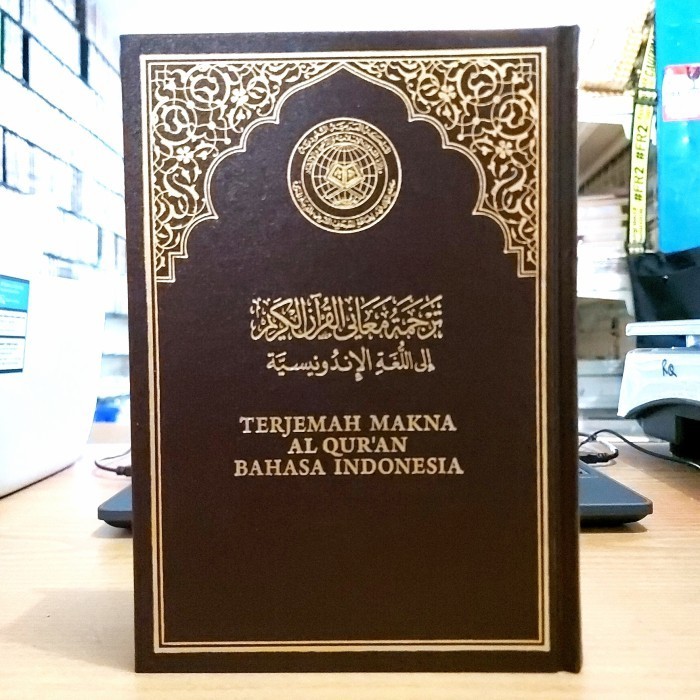 تَرْجَمَةُ مَعَانِي القُرْآنِ الكَرِيمِ
إِلَى اللُّغَةِ الإِنْدُونِيسِيَّة
TERJEMAH MAKNA
AL QUR'AN
BAHASA INDONESIA
#FR2 #FR2
RQ